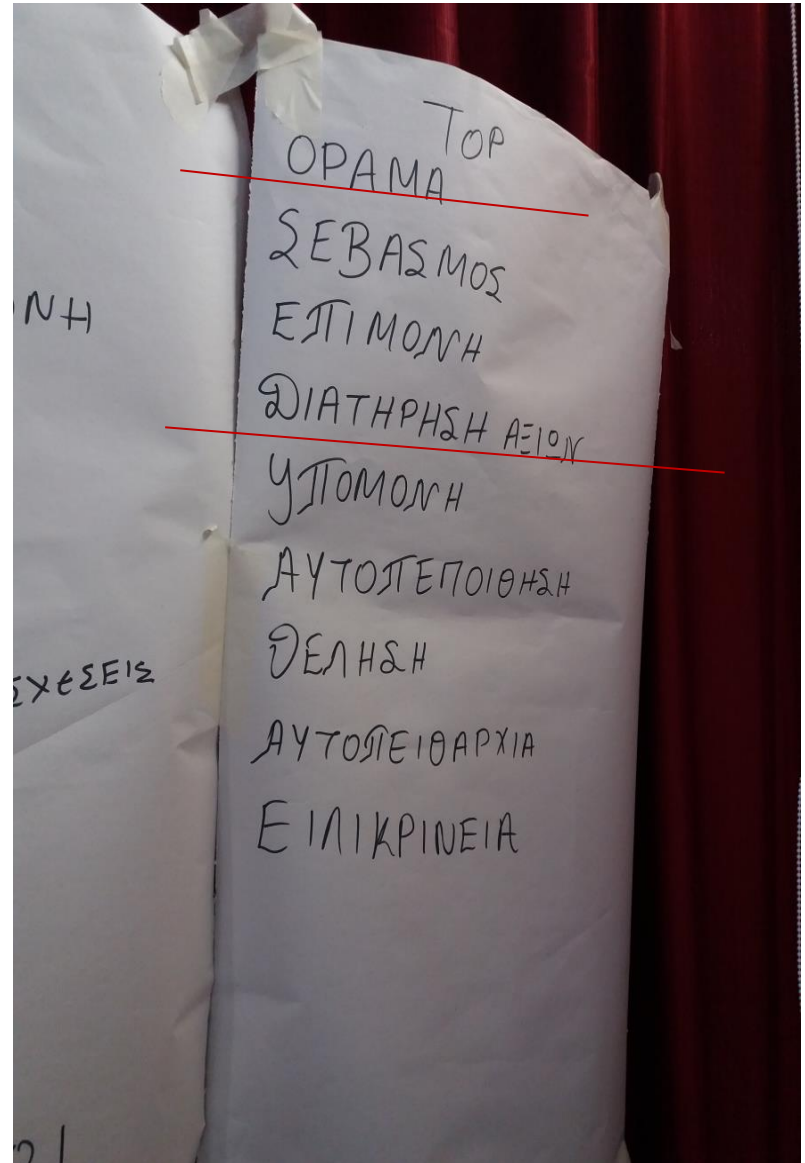 TOP
ΟΡΑΜΑ
ΣΕΒΑΣΜΟΣ
ΕΠΙΜΟΝΗ
ΔΙΑΤΗΡΗΣΗ ΑΞΙΩΝ
ΥΠΟΜΟΝΗ
ΑΥΤΟΠΕΠΟΙΘΗΣΗ
ΘΕΛΗΣΗ
ΑΥΤΟΠΕΙΘΑΡΧΙΑ
ΕΙΛΙΚΡΙΝΕΙΑ
ΣΧΕΣΕΙΣ